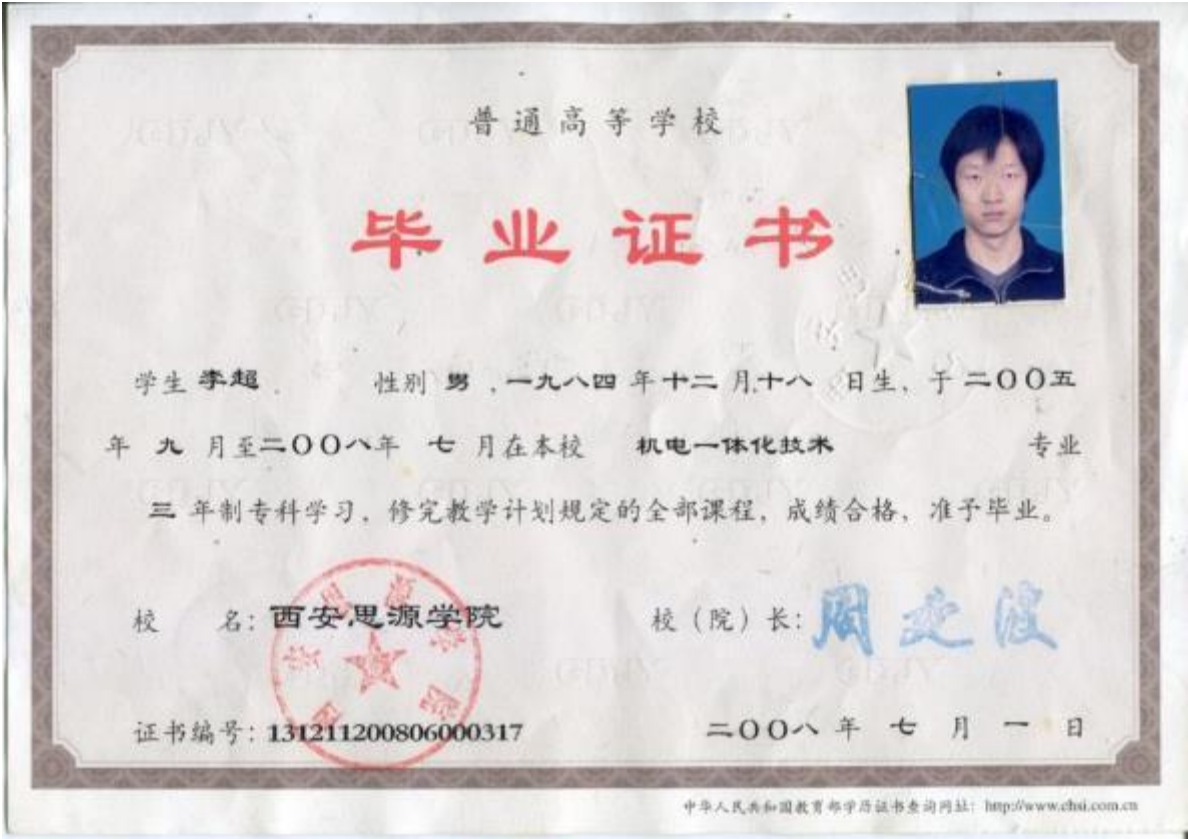 普通高等学校
毕业证书
学生 李超 . 性别 男 ,一九八四 年 十二 月,十八 日生、于 二〇〇五
年 九 月至二〇〇八年 七 月在本校 机电一体化技术 专业
三 年制专科学习,修完教学计划规定的全部课程,成绩合格,准予毕业。
校 名:西安思源学院
校(院)长:
证书编号:131211200806000317
二〇〇八 年 七 月 一 日
中华人民共和国教育部学历证书查询网址:http://www.chsi.com.cn
西安思源学院